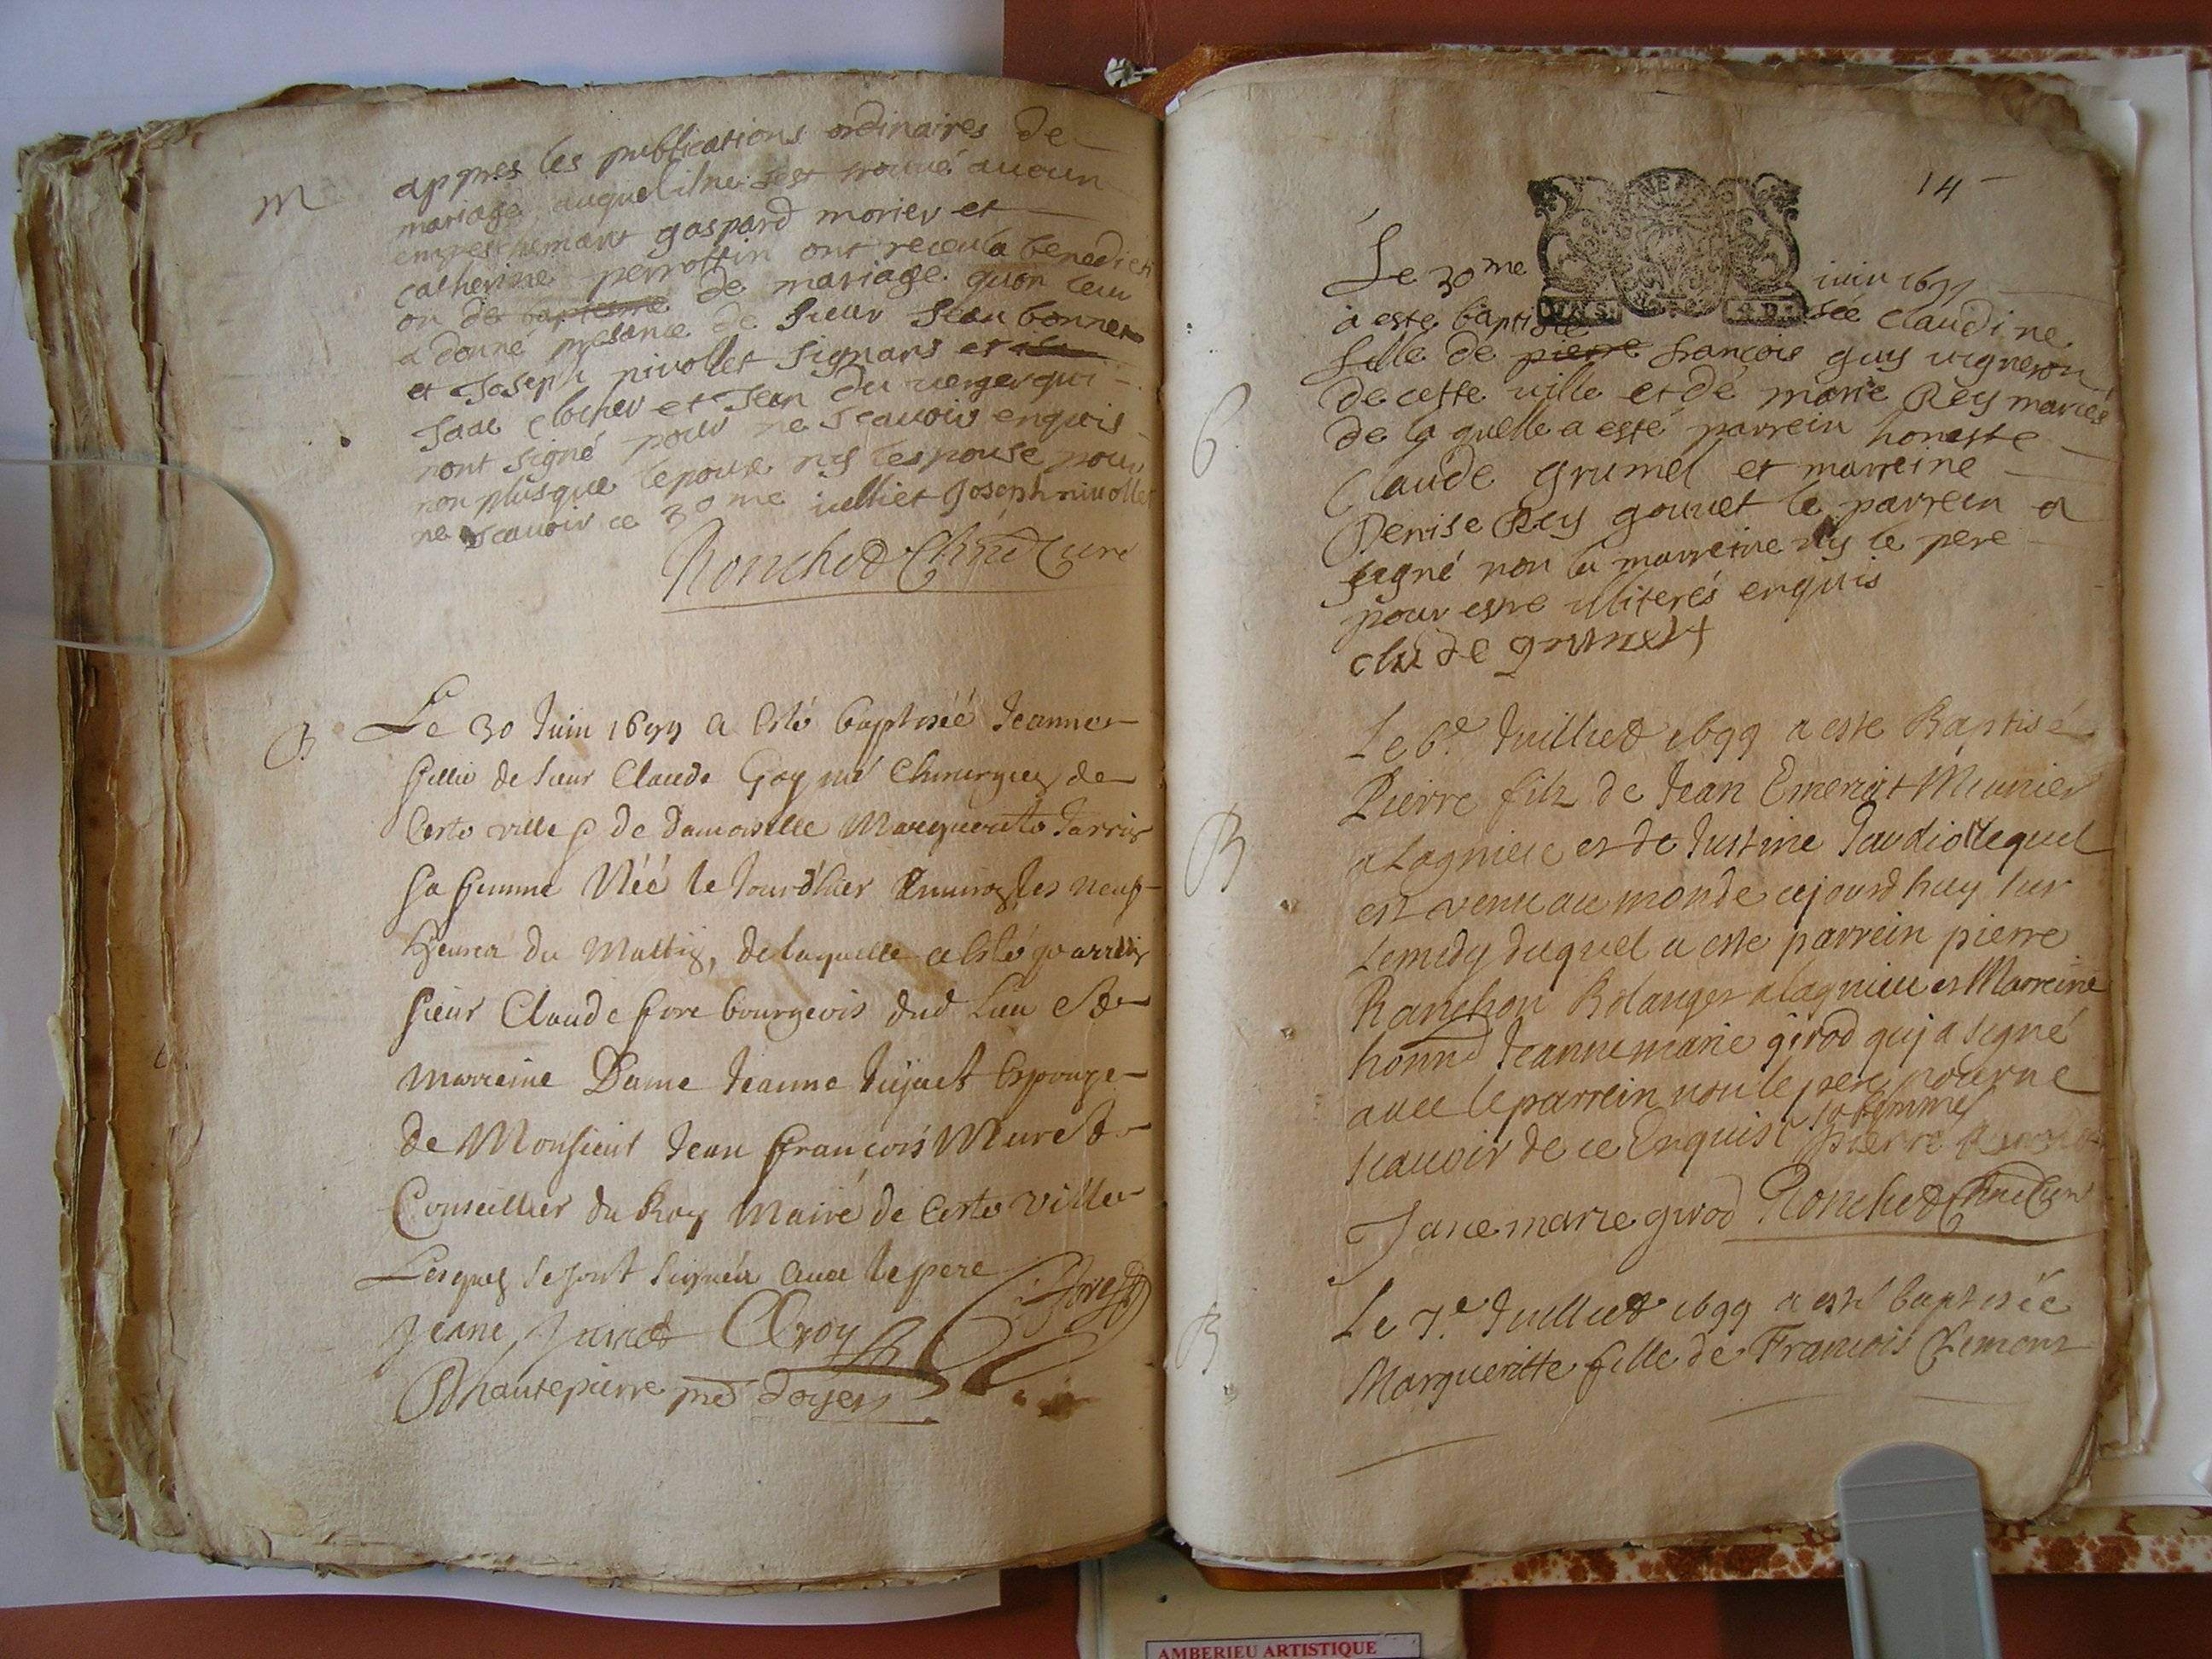 m
appres les publications ordinaires de
mariage auquel il ne sest trouué aucun
empeschemant gaspard morier et
catherine perrossin ont receu la benedicti
on de baptesme de mariage quon leur
a donné presance de sieur Jean bonnet
et Joseph nivollet signans et
Isaac clocher et Jean du verger qui
nont signé pour ne scauoir enquis
non plus que lepoux ny lespouse pour
ne scauoir ce 30me iulliet Joseph nivollet
Ronchod Chne Curé
B
Le 30 Juin 1699 a esté baptiséé Jeanne
fillie de sieur Claude Goy mé Chirurgien de
Ceste ville & de damoiselle Marguerite
sa femme Néé le Jour d'hier Environ les neuf
heures du Mattin, de laquelle a esté parrein
sieur Claude fore bourgeois dud Lieu &
marreine Dame Jeanne Espouze
de Monsieur Jean François Muret
Conseillier du Roy Maire de Ceste ville
Lesquels se sont signéz auec le pere
Jeane CGoy fore
Dhautepierre pnd doyen
14
Le 30me iuin 1699
a este baptisée Claudine
fille de pierre françois guy vigneron
de cette ville et de marie Rey mariés
de la quelle a esté parrein honeste
Claude grumel et marreine
Denise Rey gouuet le parrein a
signé non la marreine ny le pere
pour estre illiterés enquis
clade grumel
6
B
Le 6e Juillied 1699 a este Baptisé
Pierre filz de Jean Emerigt Meunier
a Lagnieu et de Justine Jaudio lequel
est venu au monde cejourdhuy sur
Lemidy duquel a este parrein pierre
Ranchon Bolanger a lagnieu et Marreine
honne Jeanne marie girod qui a signé
auec le parrein non le pere pour ne
scauoir de ce Enquis &
pierre
Jane marie girod Ronchod Chne Curé
B
Le 7e Juillied 1699 a esté baptisée
Margueritte fille de François Simont
AMBERIEU ARTISTIQUE